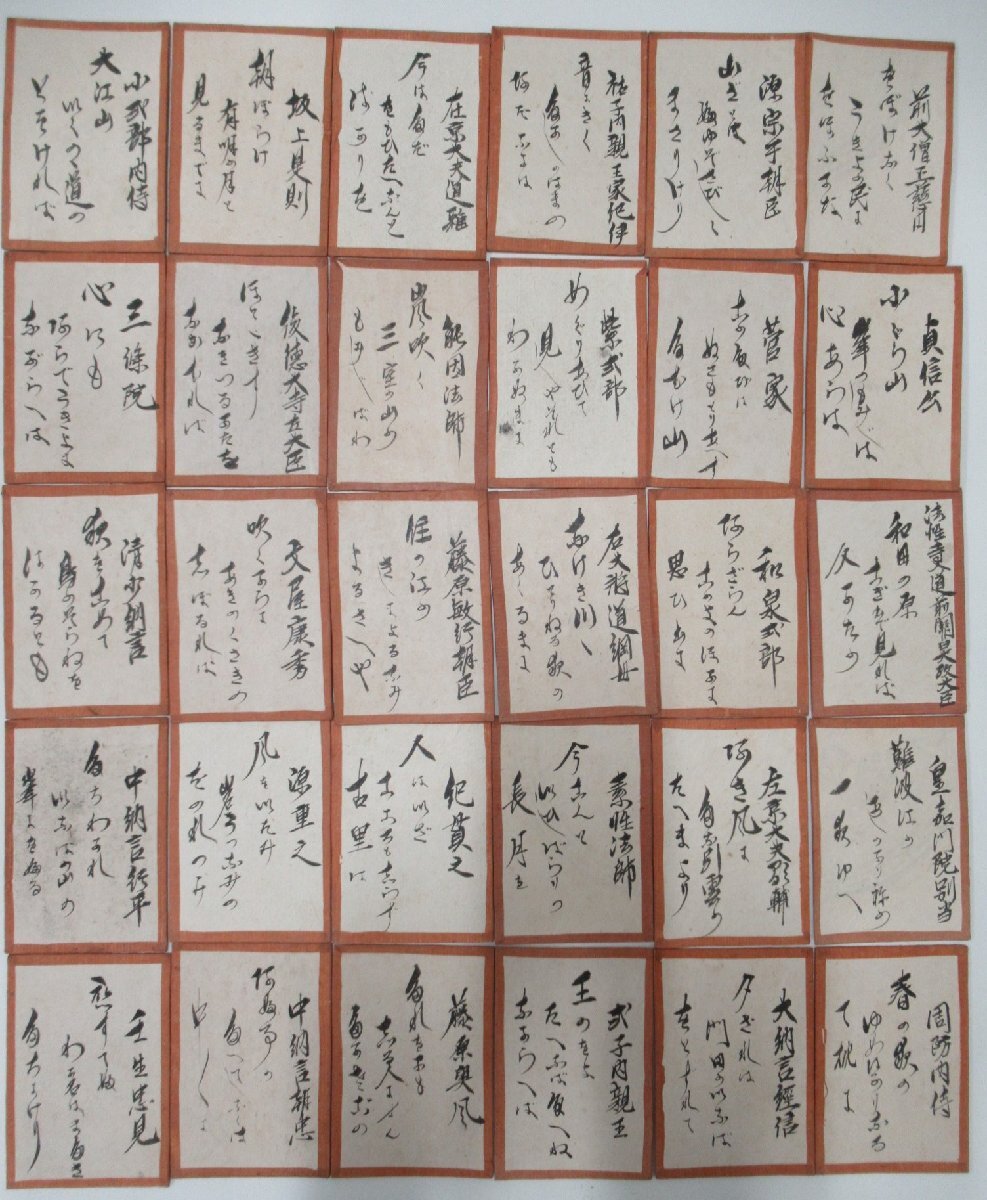 前大僧正慈円
おほけなく
うき世の民に
おほふかな
源宗于朝臣
山ざとは
冬ぞさびしさ
まさりけり
祐子内親王家紀伊
音にきく
たかしのはまの
あだなみは
左京大夫道雅
今はただ
おもひたへなんと
ばかりを
坂上是則
朝ぼらけ
有明の月と
見るまでに
小式部内侍
大江山
いくのの道の
とをければ
貞信公
小ぐら山
峯のもみぢば
心あらば
菅家
このたびは
ぬさもとりあへず
たむけ山
紫式部
めぐりあひて
見しやそれとも
わかぬまに
能因法師
嵐吹く
三室の山の
もみぢばわ
後徳大寺左大臣
ほととぎす
なきつるかたを
ながむれば
三條院
心にも
あらでうきよに
ながらへば
法性寺入道前関白太政大臣
和田の原
こぎ出て見れば
久かたの
和泉式部
あらざらん
このよのほかに
思ひ出に
右大将道綱母
なげきつつ
ひとりねる夜の
あくるまに
藤原敏行朝臣
住の江の
きしによるなみ
よるさへや
文屋康秀
吹くからに
あきのくさきの
しほるれば
清少納言
夜をこめて
鳥のそらねを
はかるとも
皇嘉門院別当
難波江の
あしのかりねの
一夜ゆへ
左京大夫顕輔
あき風に
たなびく雲の
たへまより
素性法師
今こんと
いひしばかりの
長月を
紀貫之
人はいざ
こころもしらず
古里は
源重之
風をいたみ
岩うつなみの
をのれのみ
中納言行平
たちわかれ
いなばの山の
峯におふる
周防内侍
春の夜の
ゆめばかりなる
て枕に
大納言経信
夕ざれば
門田のいなば
をとづれて
式子内親王
玉のをよ
たへなばたへね
ながらへば
藤原興風
たれをかも
しる人にせん
たかさごの
中納言朝忠
あふ事の
たへてしなくは
中々に
壬生忠見
恋すてふ
わが名はまだき
たちにけり